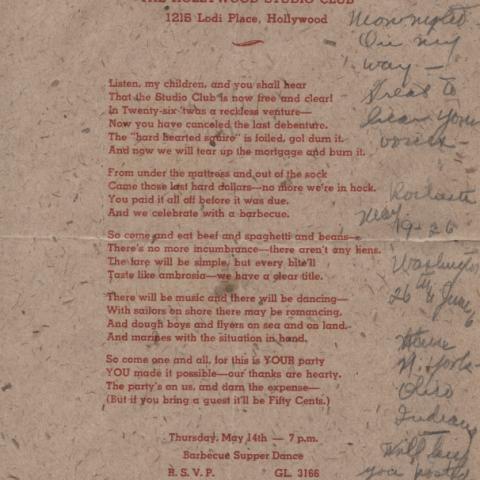 THE HOLLYWOOD STUDIO CLUB
1215 Lodi Place, Hollywood
Listen, my children, and you shall hear
That the Studio Club is now free and clear!
In Twenty-six 'twas a reckless venture—
Now you have canceled the last debenture.
The "hard hearted squire" is foiled, gol durn it.
And now we will tear up the mortgage and burn it.
From under the mattress and out of the sock
Came those last hard dollars—no more we're in hock.
You paid it all off before it was due.
And we celebrate with a barbecue.
So come and eat beef and spaghetti and beans—
There's no more incumbrance—there aren't any liens.
The fare will be simple, but every bite'll
Taste like ambrosia—we have a clear title.
There will be music and there will be dancing—
With sailors on shore there may be romancing,
And dough boys and flyers on sea and on land.
And marines with the situation in hand.
So come one and all, for this is YOUR party
YOU made it possible—our thanks are hearty.
The party's on us, and darn the expense—
(But if you bring a guest it'll be Fifty Cents.)
Thursday, May 14th — 7 p.m.
Barbecue Supper Dance
R. S. V. P. GL. 3166
On my
way —
Treat to
hear your
voices —
May
19-26
Washington
26th June
N. York-
Ohio
Indiana
Will
you